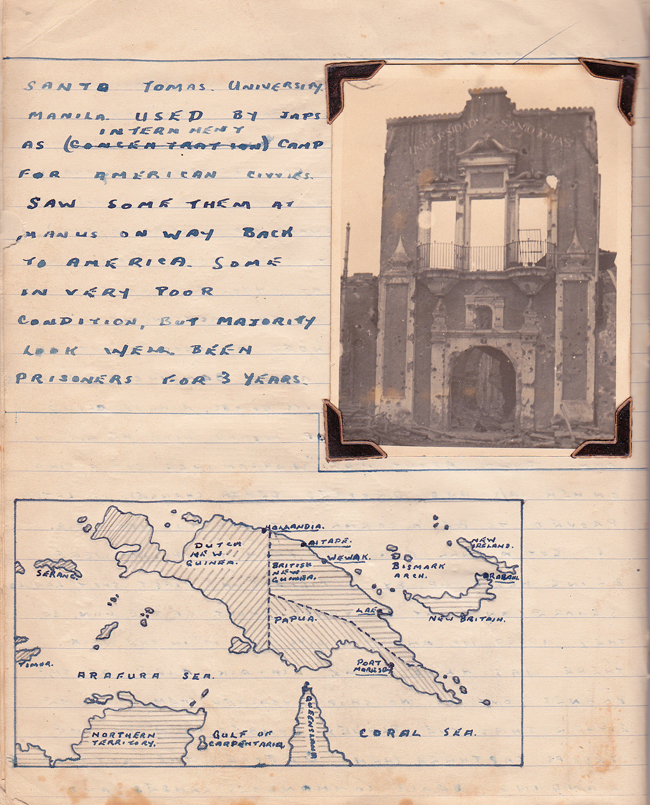 SANTO TOMAS. UNIVERSITY.
MANILA USED BY JAPS
INTERNMENT
AS (CONCENTRATION) CAMP
FOR AMERICAN CIVVIES.
SAW SOME THEM AT
MANUS ON WAY BACK
TO AMERICA. SOME
IN VERY POOR
CONDITION, BUT MAJORITY
LOOK WELL. BEEN
PRISONERS FOR 3 YEARS.
UNIVERSIDAD SANTO TOMAS
HOLLANDIA.
AITAPE.
WEWAK.
DUTCH
NEW
GUINEA.
BRITISH
NEW
GUINEA.
BISMARK
ARCH.
NEW
IRELAND.
RABAUL
NEW BRITAIN.
SERANG.
LAE
PAPUA.
PORT
MORESBY
TIMOR.
ARAFURA SEA.
NORTHERN
TERRITORY.
GULF OF
CARPENTARIA
QUEENSLAND
CORAL SEA.